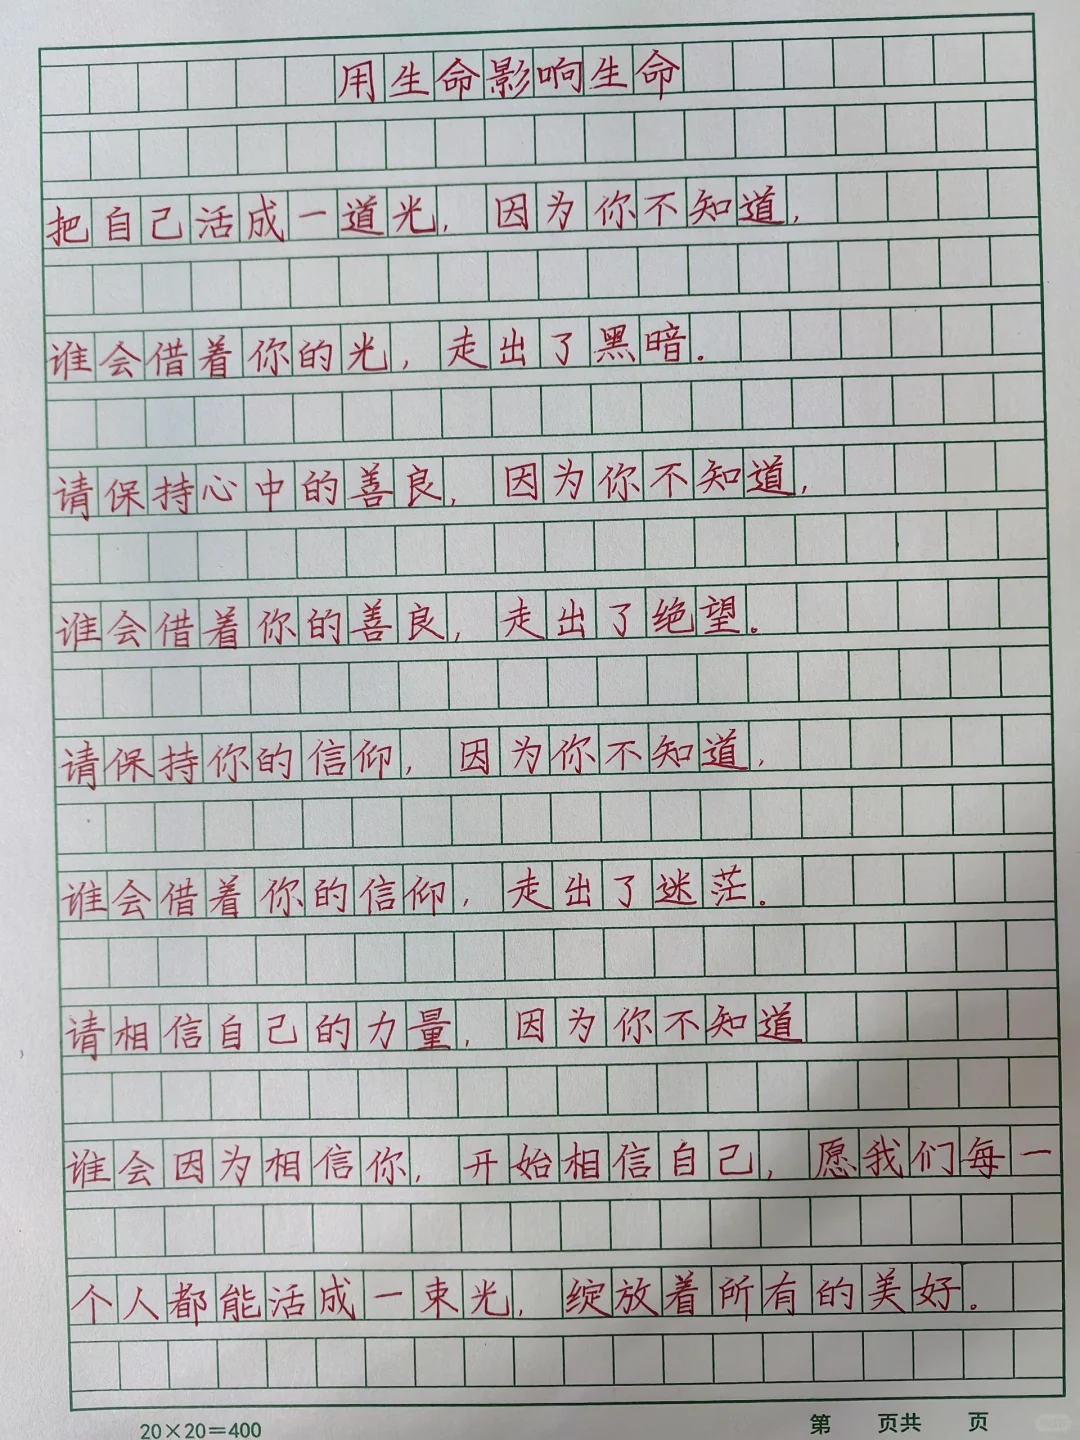 用生命影响生命
把自己活成一道光，因为你不知道，
谁会借着你的光，走出了黑暗。
请保持心中的善良，因为你不知道，
谁会借着你的善良，走出了绝望。
请保持你的信仰，因为你不知道，
谁会借着你的信仰，走出了迷茫。
请相信自己的力量，因为你不知道
谁会因为相信你，开始相信自己，愿我们每一
个人都能活成一束光，绽放着所有的美好。
20×20=400
第 页共 页